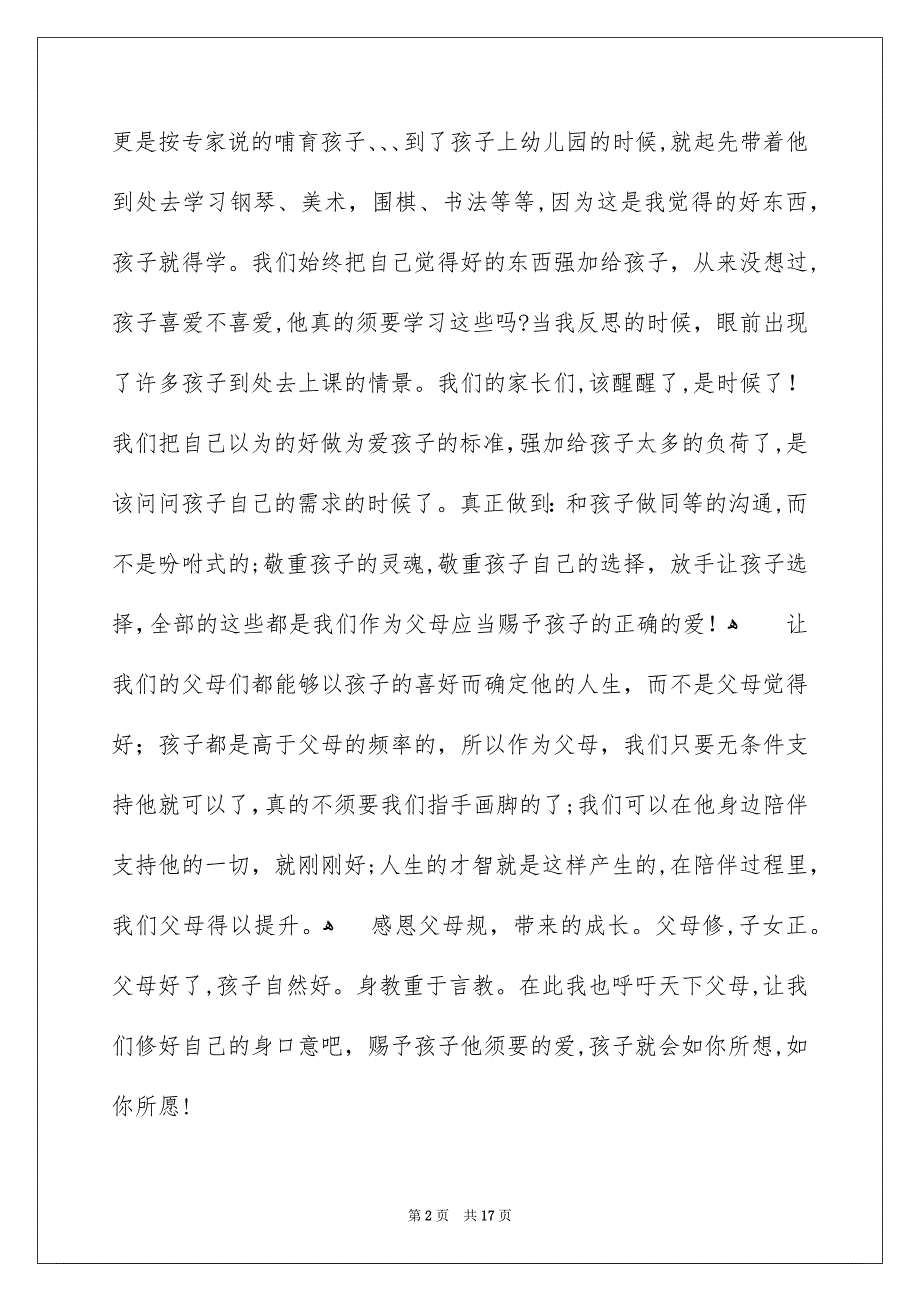 更是按专家说的哺育孩子、、、到了孩子上幼儿园的时候,就起先带着他
到处去学习钢琴、美术，围棋、书法等等,因为这是我觉得的好东西，
孩子就得学。我们始终把自己觉得好的东西强加给孩子，从来没想过,
孩子喜爱不喜爱,他真的须要学习这些吗?当我反思的时候，眼前出现
了许多孩子到处去上课的情景。我们的家长们,该醒醒了,是时候了！
我们把自己以为的好做为爱孩子的标准,强加给孩子太多的负荷了,是
该问问孩子自己的需求的时候了。真正做到：和孩子做同等的沟通,而
不是吩咐式的;敬重孩子的灵魂,敬重孩子自己的选择，放手让孩子选
择,全部的这些都是我们作为父母应当赐予孩子的正确的爱！ﻫ 让
我们的父母们都能够以孩子的喜好而确定他的人生，而不是父母觉得
好；孩子都是高于父母的频率的，所以作为父母，我们只要无条件支
持他就可以了,真的不须要我们指手画脚的了;我们可以在他身边陪伴
支持他的一切，就刚刚好;人生的才智就是这样产生的,在陪伴过程里，
我们父母得以提升。ﻫ 感恩父母规，带来的成长。父母修,子女正。
父母好了,孩子自然好。身教重于言教。在此我也呼吁天下父母,让我
们修好自己的身口意吧，赐予孩子他须要的爱,孩子就会如你所想,如
你所愿!
第 2 页 共 17 页